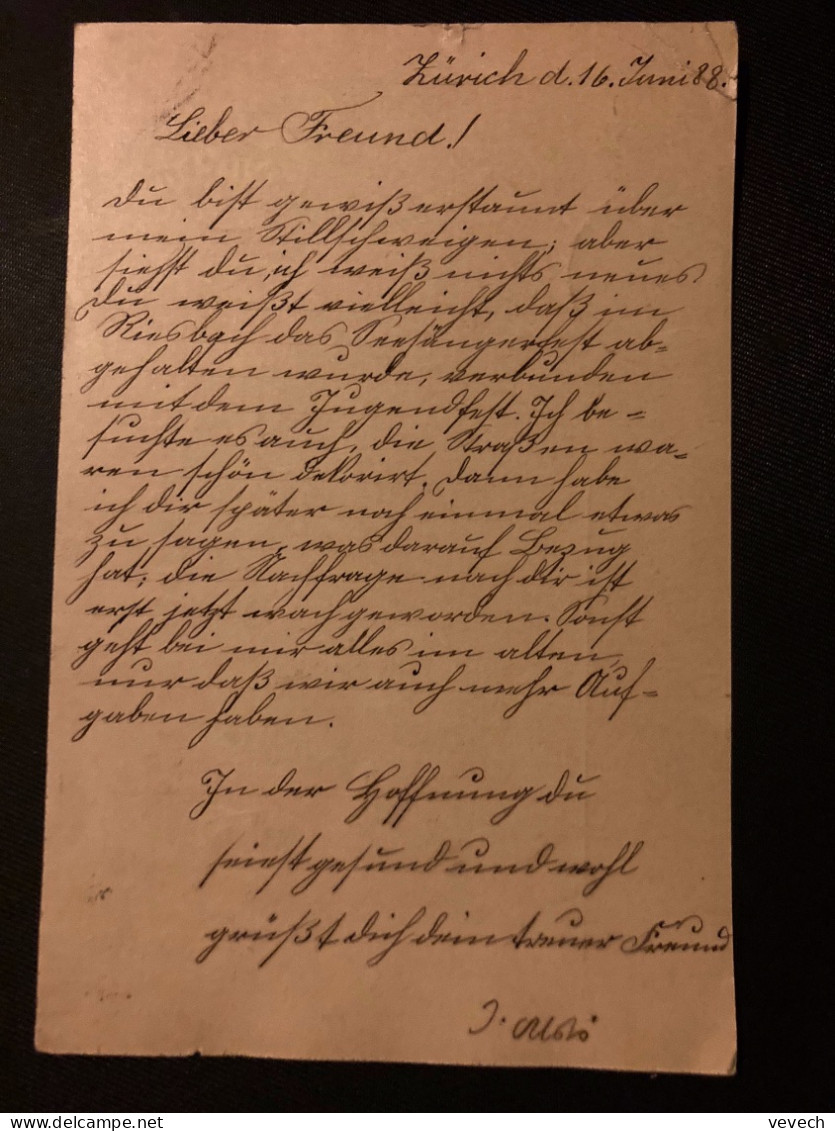 Zürich d. 16. Juni 88.
Lieber Freund!
Du bist gewiß erstaunt über
mein Stillschweigen; aber
siehst du, ich weiß nichts neues
Du weißt vielleicht, daß im
Riesbach das Seesängerfest ab-
gehalten wurde, verbunden
mit dem Jugendfest. Ich be-
suchte es auch, die Straßen wa-
ren schön dekorirt. Dann habe
ich dir später noch einmal etwas
zu sagen, was darauf Bezug
hat; die Nachfrage nach dir ist
erst jetzt wach geworden. Sonst
geht bei mir alles im alten,
nur daß wir auch mehr Auf-
gaben haben.
In der Hoffnung du
seiest gesund und wohl
grüßt dich dein treuer Freund
J.
vevech